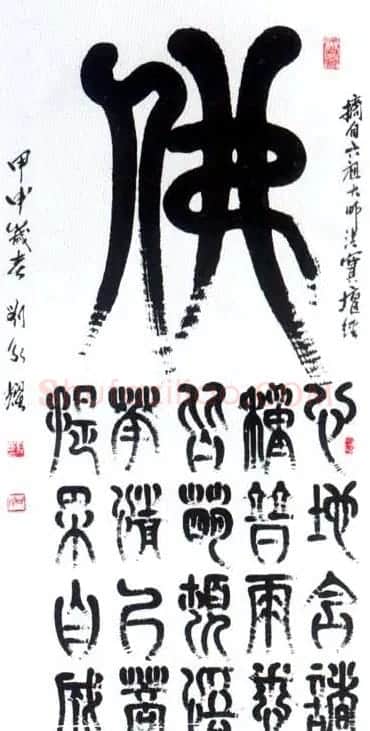 佛
摘自六祖大師法寶壇經
心地含諸
種普雨悉
皆萌頓悟
華情已菩
提果自成
甲申歲 劉 耀